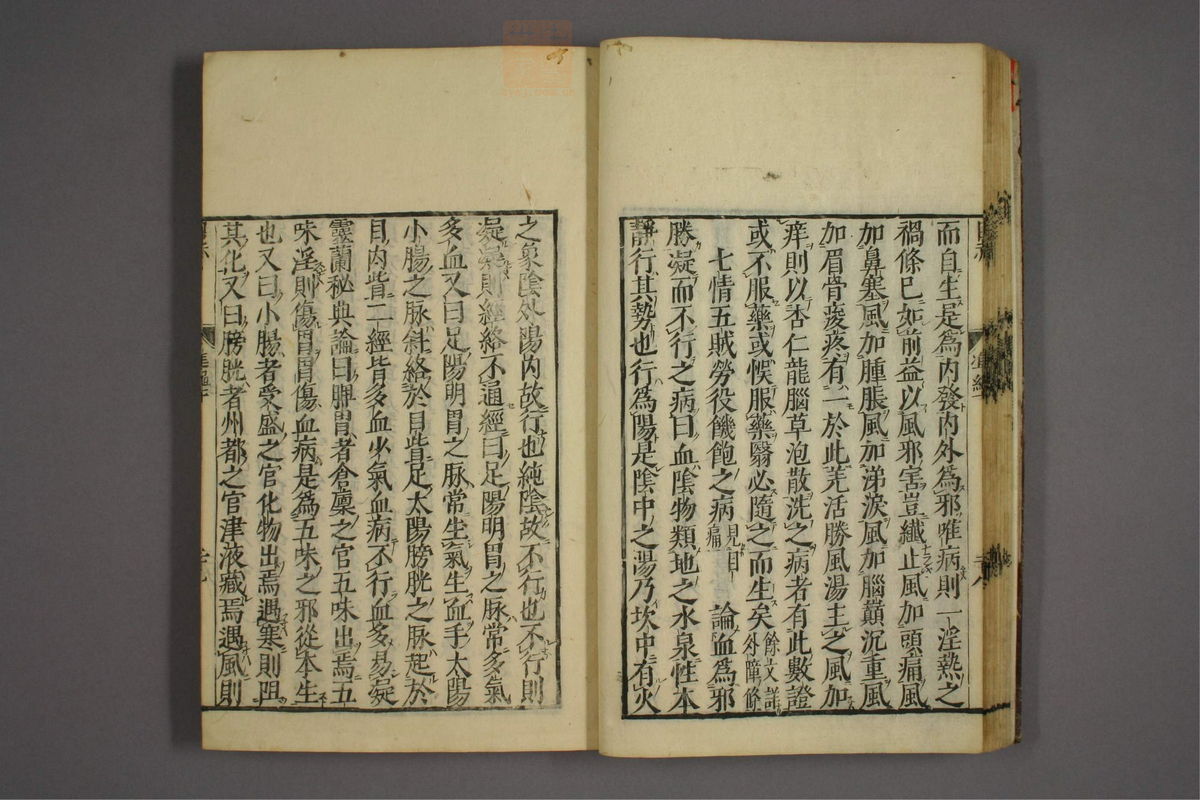 而自生是為内發内外為邪唯病則一淫熱之
禍條已如前益以風邪害豈纎止風加頭痛風
加鼻塞風加腫脹風加涕淚風加腦巔沉重風
加眉骨痠疼有一於此羌活勝風湯主之風加
痒則以杏仁龍腦草泡散洗之病者有此數證
或不服藥或悞服藥翳必隨之而生矣餘文詳外障條
七情五賊勞役饑飽之病見目痛 論血為邪
勝凝而不行之病曰血陰物類地之水泉性本
靜行其勢也行為陽是陰中之陽乃坎中有火
之象陰外陽内故行也純陰故不行也不行則
凝凝則經絡不通經曰足陽明胃之脉常多氣
多血又曰足陽明胃之脉常生氣生血手太陽
小腸之脉斜絡於目眥足太陽膀胱之脉起於
目内眥二經皆多血少氣血病不行血多易凝
靈蘭秘典論曰脾胃者倉廩之官五味出焉五
味淫則傷胃胃傷血病是為五味之邪從本生
也又曰小腸者受盛之官化物出焉遇寒則阻
其化又曰膀胱者州都之官津液藏焉遇風則